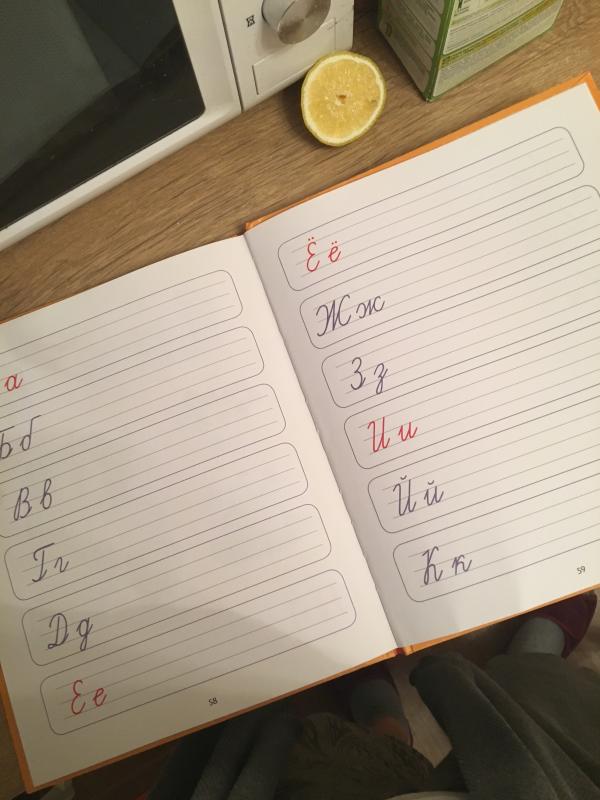 а
Бб
Вв
Гг
Дд
Ее
58
Ёё
Жж
Зз
Ии
Йй
Кк
59